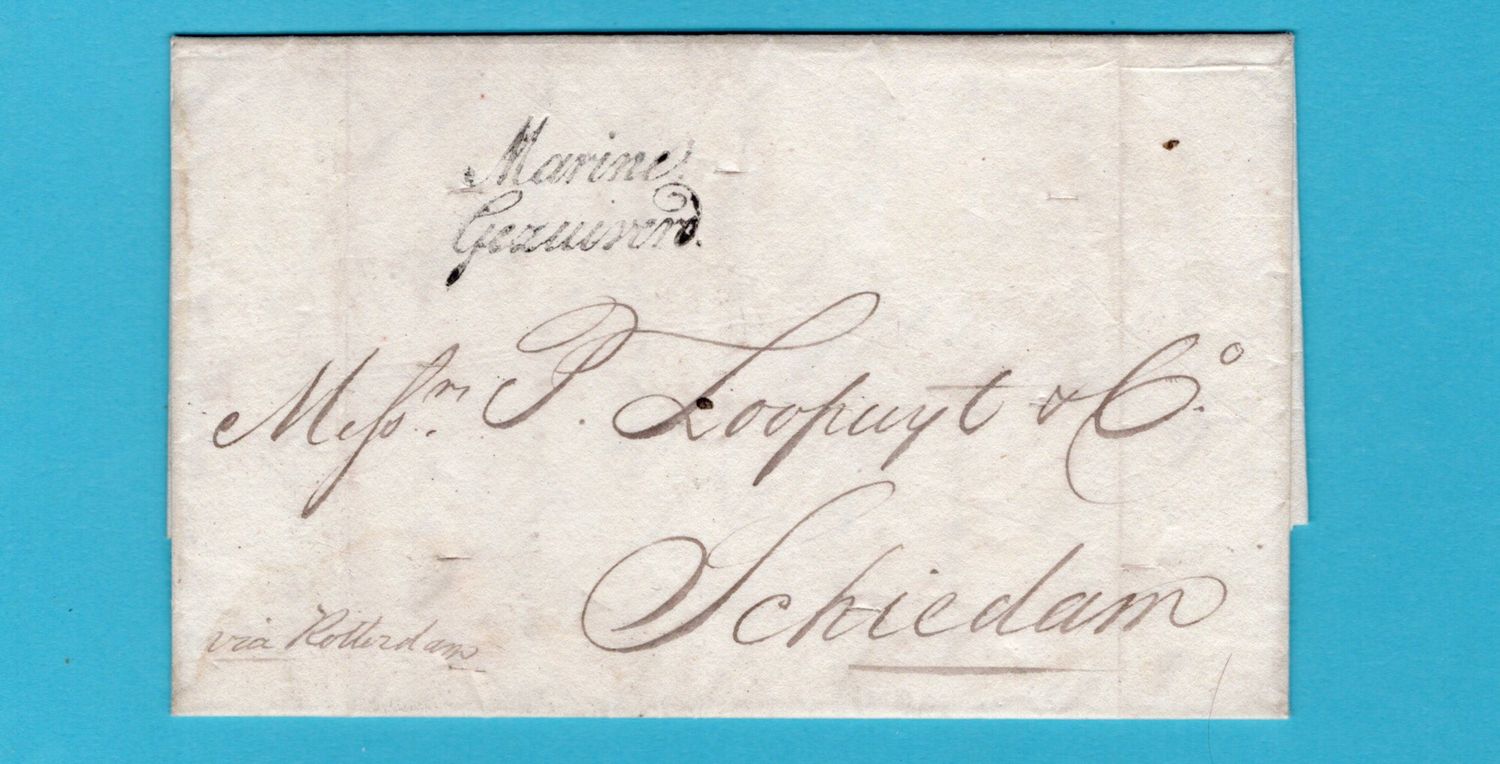 Marine
Gezuiverd.
Messrs. P. Loopuyt & Co.
Schiedam
via Rotterdam